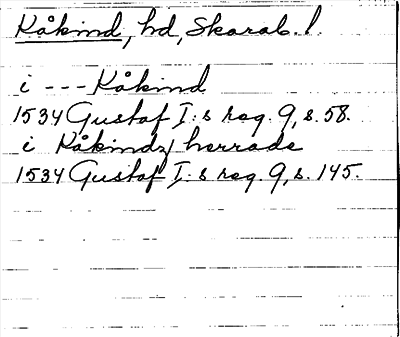 Kåkind, hd, Skarab. l.
i --- Kåkind
1534 Gustaf I:s reg. 9, s. 58.
i Kåkindz herrade
1534 Gustaf I:s reg. 9, s. 145.